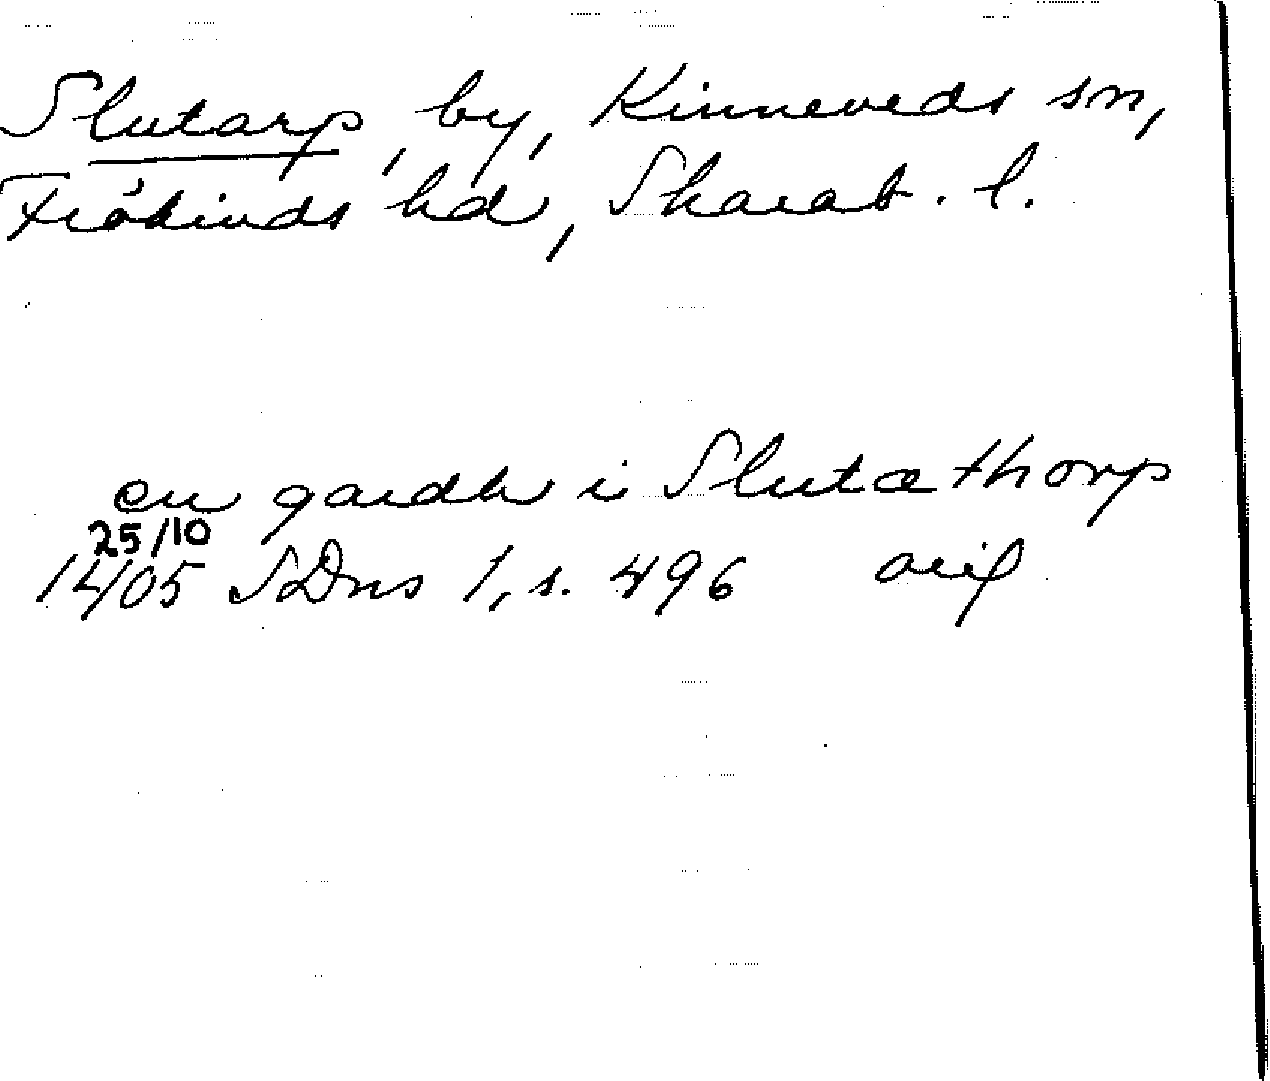 Slutarp, by, Kinneveds sn,
Frökinds hd, Skarab. l.
en gardh i Slutæthorp
25/10
1405 SDns 1, s. 496 orig